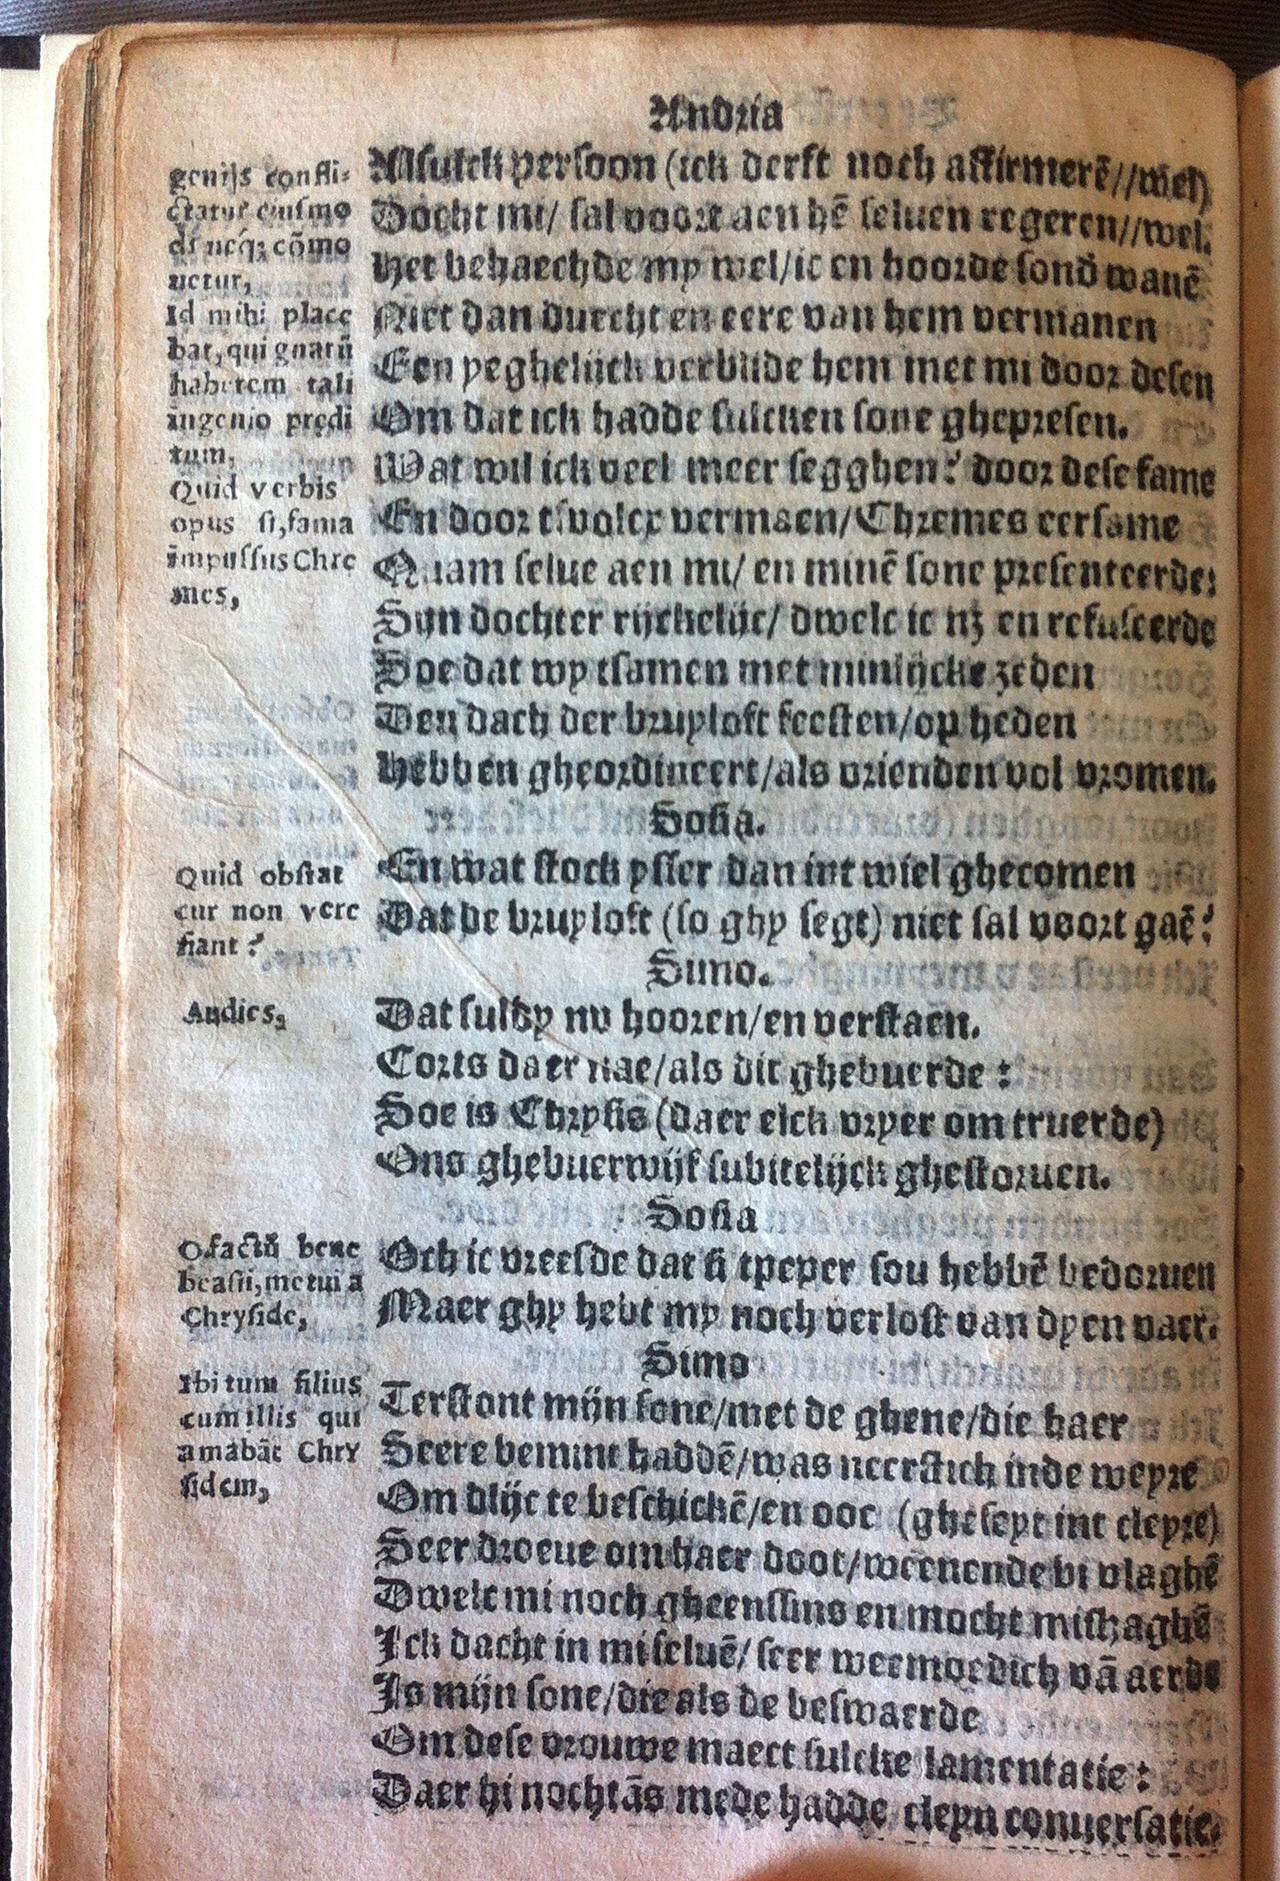 Andria
genijs confli-
ctatur eiusmo
di neq; cōmo
uetur,
Id mihi place
bat, qui gnatū
haberem tali
ingenio prędi
tum,
Quid verbis
opus si, fama
impulsus Chre
mes,
Alsulck persoon (ick derft noch affirmerē//wel)
Docht mi/ sal voort aen hē seluen regeren//wel.
Het behaechde my wel/ic en hoorde sond wanē
Niet dan duecht en eere van hem vermanen
Een yeghelijck verblide hem met mi door desen
Om dat ick hadde sulcken sone ghepresen.
Wat wil ick veel meer segghen? door dese fame
En door tsvolcx vermaen/Chremes eersame
Quam selue aen mi/ en minē sone presenteerde:
Sijn dochter rijckelijc/ dwelc ic nz en refuseerde
Soe dat wy tsamen met minlijcke zeden
Den dach der bruyloft feesten/op heden
Hebben gheordineert/als vrienden vol vromen.
Sosia.
Quid obstat
cur non vere
fiant?
En wat stock ysser dan int wiel ghecomen
Dat de bruyloft (so ghy segt) niet sal voort gaē?
Simo.
Audies,
Dat suldy nv hooren/en verstaen.
Corts daer nae/als dit ghebuerde:
Soe is Chrysis (daer elck vryer om truerde)
Ons ghebuerwijf subitelijck ghestoruen.
Sosia
O factū bene
beasti, metui a
Chryside,
Och ic vreesde dat si tpeper sou hebbē bedoruen
Maer ghy hebt my noch verlost van dyen vaer.
Simo
Ibi tum filius
cum illis qui
amabāt Chry
sidem,
Terstont mijn sone/met de ghene/die haer
Seere bemint haddē/was neerstich inde weyre
Om dlijc te beschickē/en ooc (gheseyt int cleyre)
Seer droeue om haer doot/weenende bi vlaghē
Dwelc mi noch gheenssins en mocht mishaghē
Ick dacht in mi seluē/ seer weemoedich vā aerde
Is mijn sone/die als de beswaerde
Om dese vrouwe maect sulcke lamentatie:
Daer hi nochtās mede hadde cleyn conuersatie.